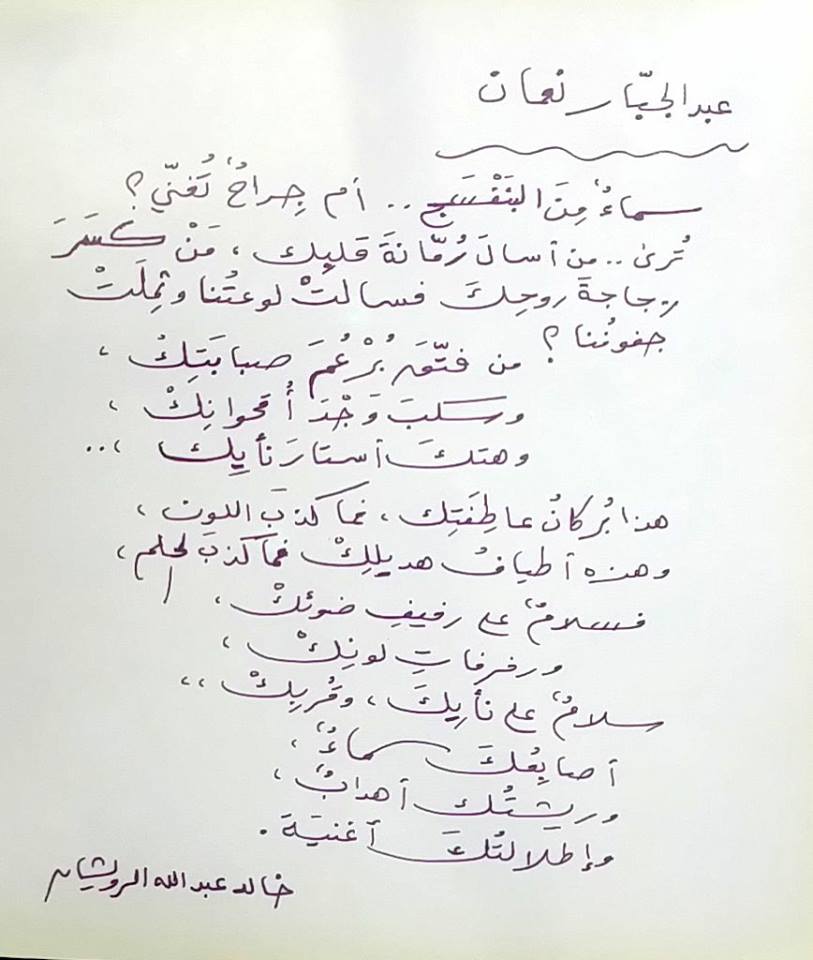 عبد الجبّار نعمان
سماءٌ مِنَ البَنَفْسَجِ .. أم جِراحٌ تُغنّي ؟
تُرى .. من أسالَ رُمّانةَ قلبِك ، مَنْ كَسَرَ
زجاجةَ روحِكَ فسالتْ لوعتُنا وثَمِلَتْ
جفونُنا ؟ من فتّقَ بُرْعُمَ صبابَتِكْ ،
وسَلَبَ وَجْدَ أُقحوانِكْ ،
وهتكَ أستارَ نأيِكْ ،..
هذا بُركانُ عاطِفَتِك ، فما كذبَ اللون ،
وهذه أطيافُ هديلِكْ فما كذبَ الحلم ،
فسلامٌ على رفيفِ ضوئكْ ،
ورفرفاتِ لونِكْ ،
سلامٌ على نأيِكَ ، وقُربِكْ ،،
أصابِعُكَ سماءٌ ،
وريشتُكَ أهدابٌ ،
وإطلالتُكَ أغنيَة .
خالد عبدالله الرويشان